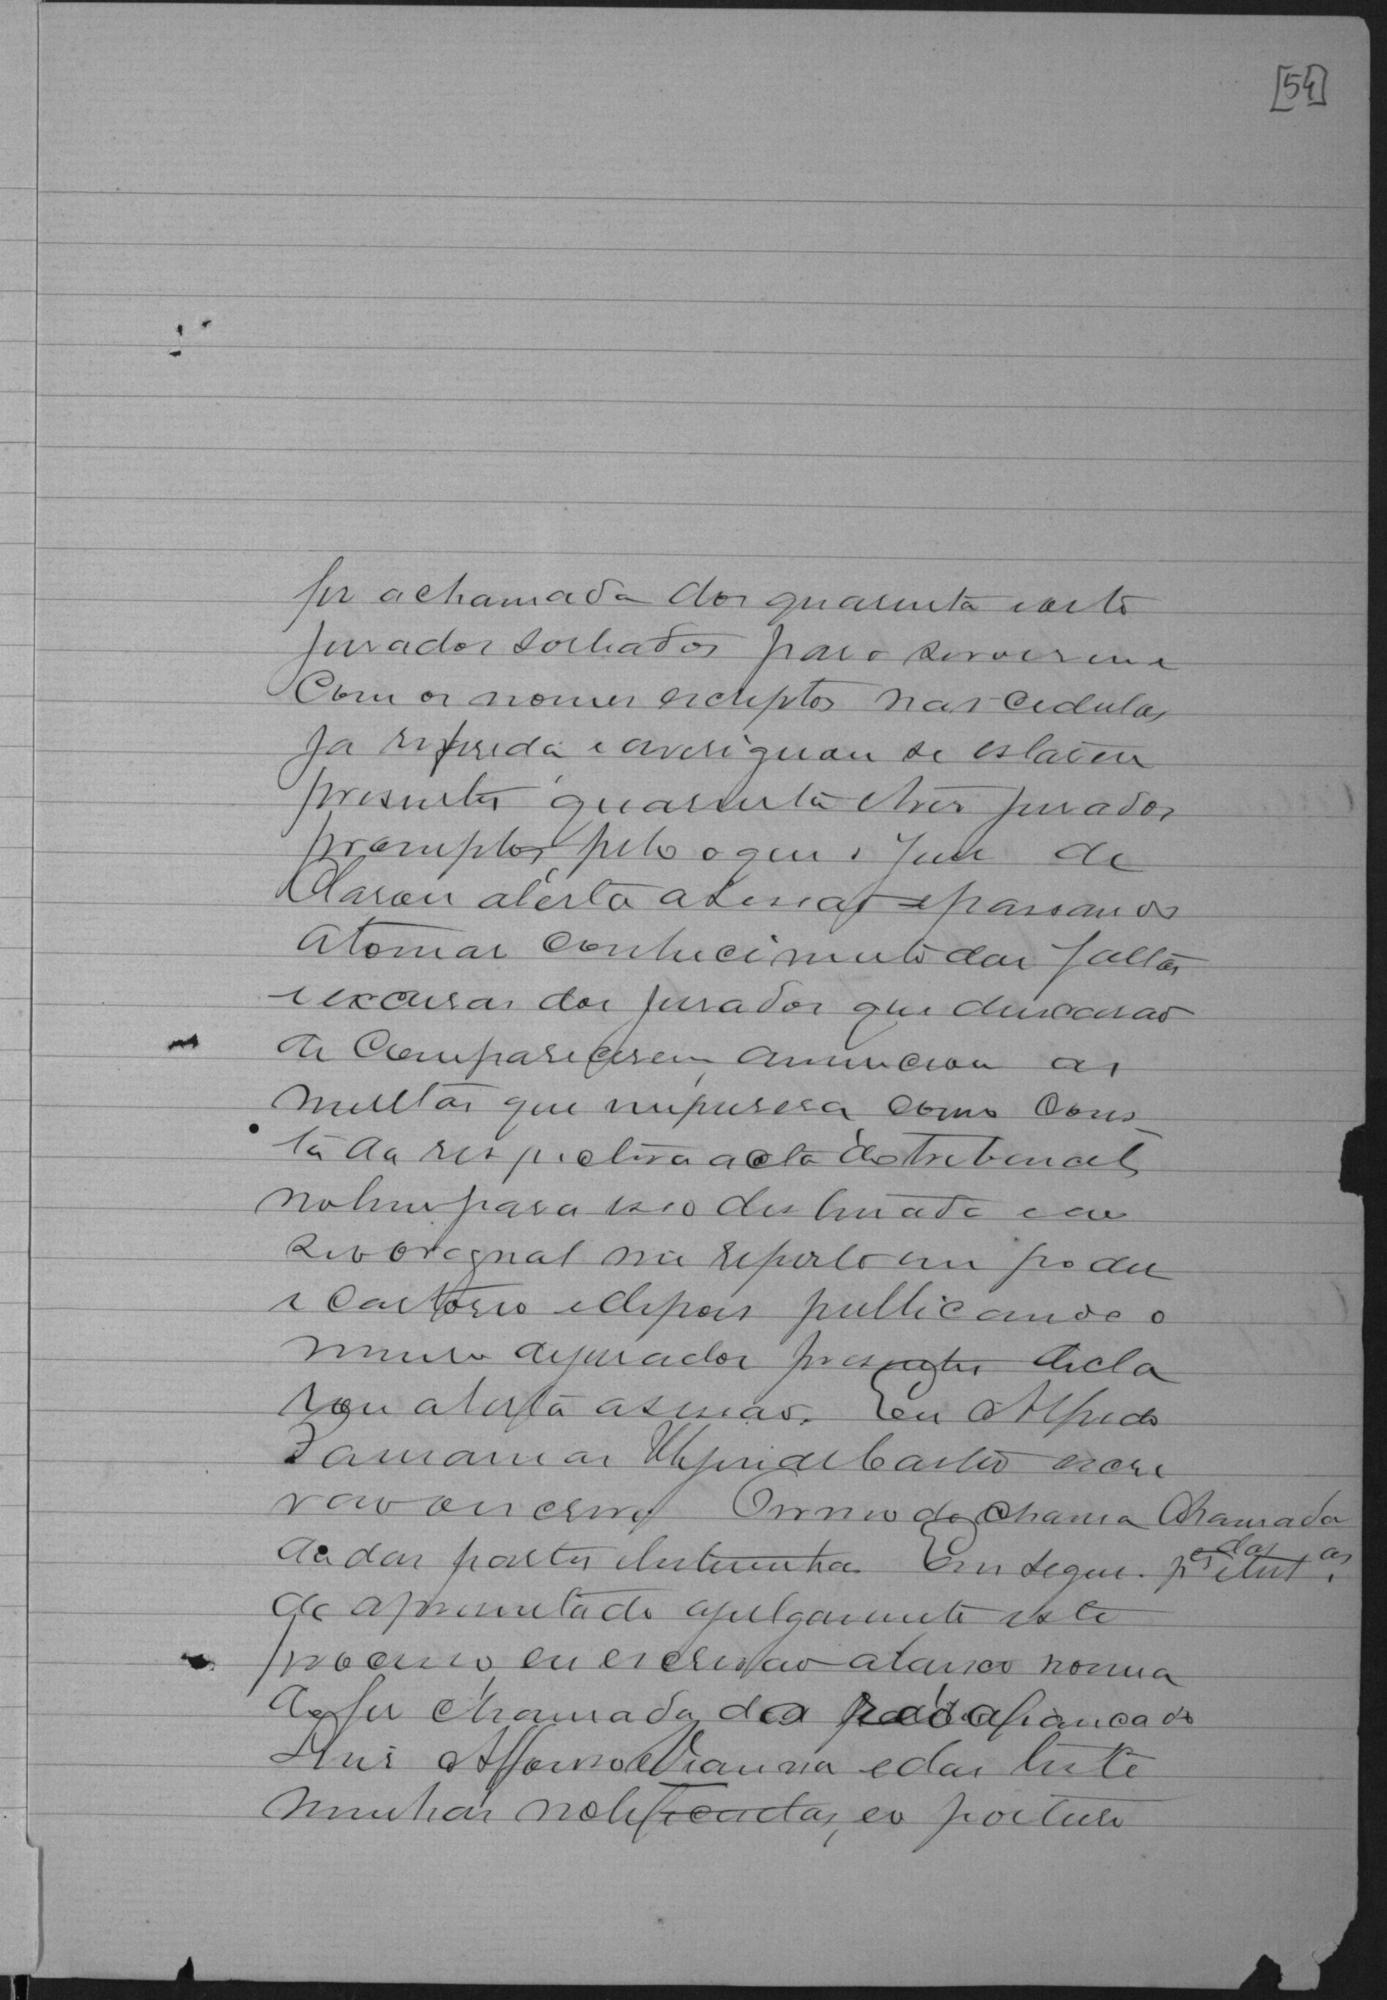 [54]
fez a chamada dos quarenta e oito
jurados sorteados para servirem e
com os nomes escriptos nas cedulas
ja referida e averiguou se estarem
presentes quarenta e tres jurados
promptos, pelo o que o Juiz de
clarou aberta a sessão e passando
a tomar conhecimento das faltas
e excusas dos jurados que deixarão
de comparecerem, annunciou as
multas que impusera como cons
ta da respectiva acta do tribunal
no livro para isso destinado e ao
seu original me reporto em poder
e cartorio e depois publicando o
numero de jurados presentes decla
rou aberta a sessão. Eu Alfredo
de Castro escri
vão o escrevi. Termo de chama
da das partes e testemunhas Em segui
Chamada
das
partes e test. as
da apresentado a julgamento este
processo, eu escrivão abaixo nomea
do fez chamada do réo afiançado
Luis Affonso Vianna e das teste
munhas notificadas, e o porteiro